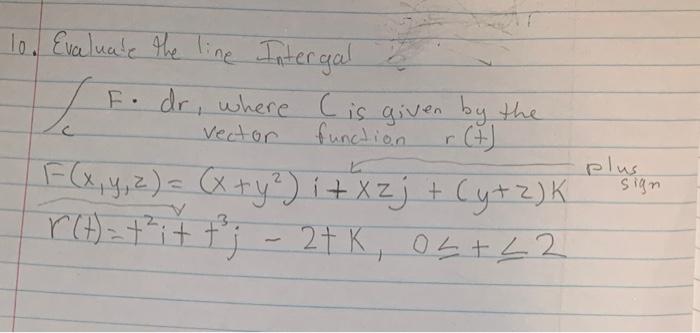 10. Evaluate the line Intergal
∫c F. dr, where C is given by the
vector function r(t)
plus
sign
F(x,y,z) = (x+y²)i + xzj + (y+z)K
r(t)=t²i + t³j - 2tK, 0≤t≤2